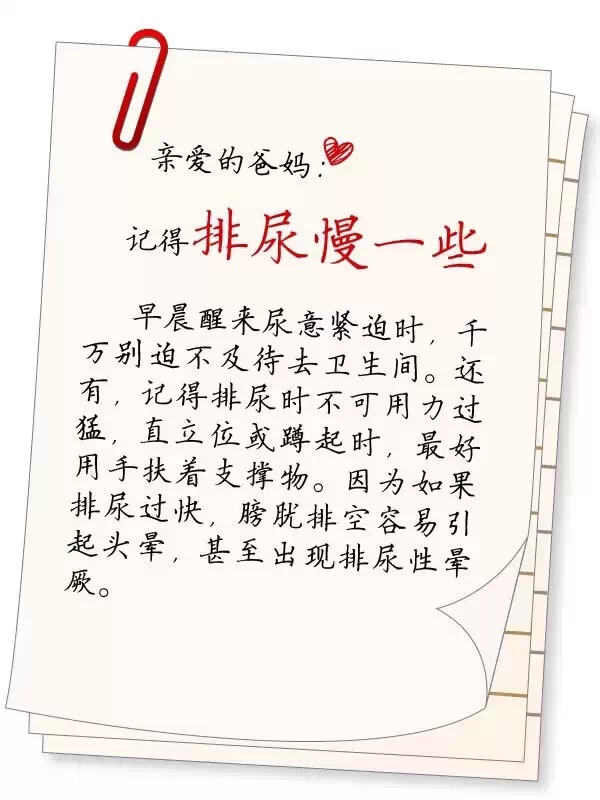 亲爱的爸妈：
记得排尿慢一些
早晨醒来尿意紧迫时，千
万别迫不及待去卫生间。还
有，记得排尿时不可用力过
猛，直立位或蹲起时，最好
用手扶着支撑物。因为如果
排尿过快，膀胱排空容易引
起头晕，甚至出现排尿性晕
厥。